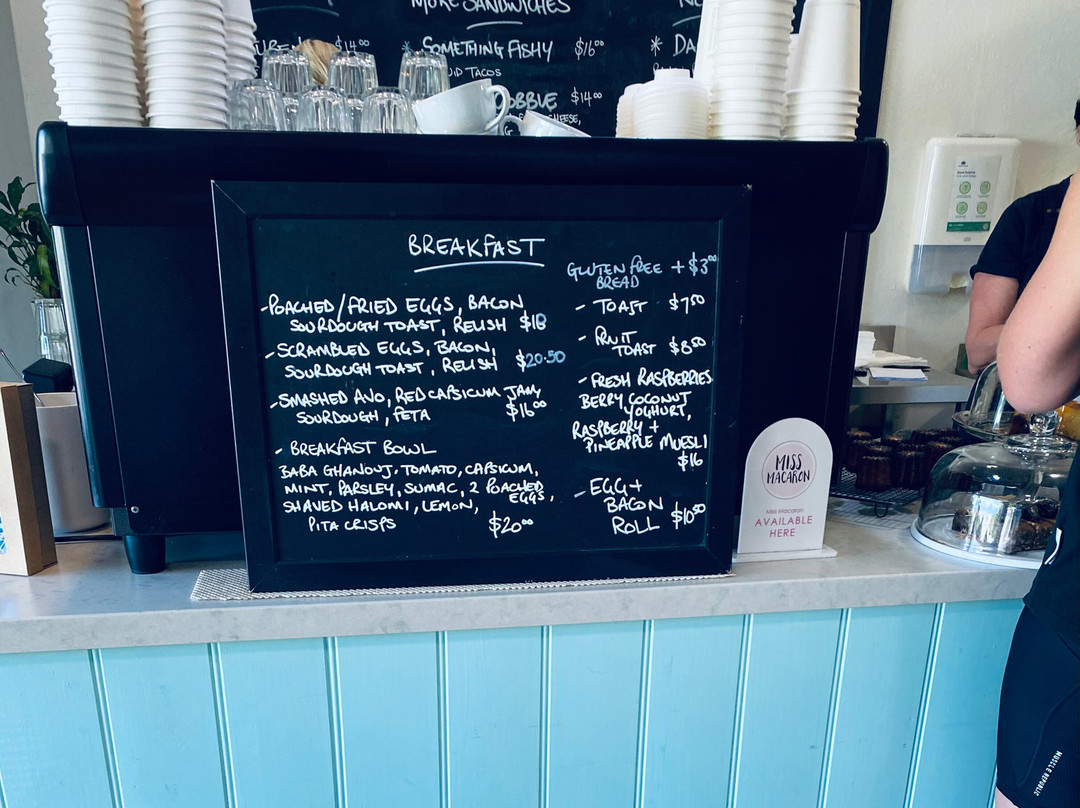 MORE SANDWICHES
$14⁰⁰
* SOMETHING FISHY $16⁰⁰
TACOS
OBBLE $14⁰⁰
CHEESE,
* DA
BREAKFAST
- POACHED/FRIED EGGS, BACON
SOURDOUGH TOAST, RELISH $18
- SCRAMBLED EGGS, BACON,
SOURDOUGH TOAST, RELISH $20.50
- SMASHED AVO, RED CAPSICUM JAM,
SOURDOUGH, FETA $16⁰⁰
- BREAKFAST BOWL
BABA GHANOUJ, TOMATO, CAPSICUM,
MINT, PARSLEY, SUMAC, 2 POACHED
EGGS,
SHAVED HALOMI, LEMON,
PITA CRISPS $20⁰⁰
GLUTEN FREE + $3⁰⁰
BREAD
- TOAST $7⁵⁰
- FRUIT
TOAST $8⁵⁰
- FRESH RASPBERRIES
BERRY COCONUT
YOGHURT,
RASPBERRY +
PINEAPPLE MUESLI
$16
- EGG +
BACON
ROLL $10⁵⁰
MISS
MACARON
Miss Macaron
AVAILABLE
HERE
MUSCLE REPUBLIC